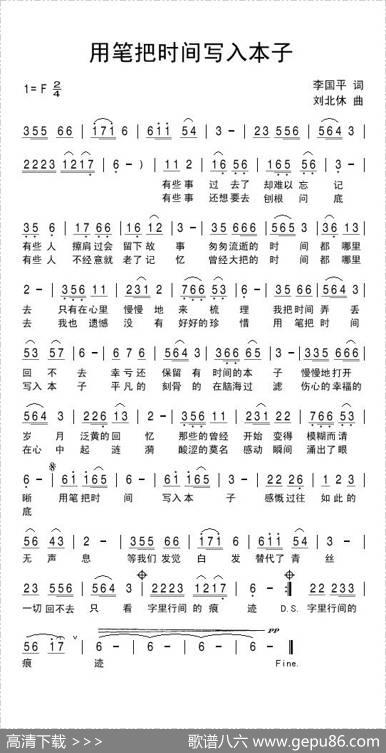 用笔把时间写入本子
1=F 2/4
李国平 词
刘北休 曲
355 66 | 171 6 | 611 54 | 3 - | 23 556 | 564 3 |
2223 1217 | 6 - ) | 112 | 16 56 | 165 56 | 3 - |
有些事 过去了 却难以忘 记
有些事 还想要去 刨根 问 底
35 1 | 17 66 | 16 12 | 3 - | 35 666 | 565 3 | 36 13 |
有些人 擦肩过会 留下故 事 匆匆流逝的 时 间 都 哪里
有些人 不经意就 老了记 忆 曾经大把的 时 间 都 哪里
2 - | 356 11 | 231 2 | 766 53 | 6 - | 356 11 | 22 31 |
去 只有在心里 慢慢 地 来 梳 理 我把时间 弄 丢
去 我也 遗憾 没有 好好的 珍 惜 用 笔把 时 间
53 57 | 6 - | 66 123 | 64 3 | 366 65 | 3 - | 356 11 |
回 不 去 幸亏还 保留 有 时间的 本 子 慢慢地 打开
写入本 子 平凡的 刻骨 的 在脑海 过 滤 伤心的 幸福的
564 3 | 226 13 | 2 - | 356 11 | 231 22 | 766 53 |
岁 月 泛黄的 回 忆 那些的 曾经 开始 变得 模糊而 清
在心 中 起 涟 漪 酸涩的 莫名 感动 瞬间 涌出了 眼
6 - | 61 165 | 6 - | 61 165 | 6 - | 22 26 | 1 2 3 |
晰 用笔把时 间 写入本 子 感慨过往 如 此 的
底
56 43 | 2 - | 356 11 | 23 1 | 66 | 171 6 | 611 54 |
无 声 息 等我们 发 觉 白 发 替代了 青 丝
23 556 | 564 3 | 2223 1217 | 6 - :‖ 23 | 2223 |
一切 回不去 只 看 字里行间的 痕 迹 D.S. 字里行间的
56 17 | 6 - | 6 - | 6 - | 6 - ‖
pp
痕 迹 Fine.
高清下载 >>>
歌谱八六 www.gepu86.com